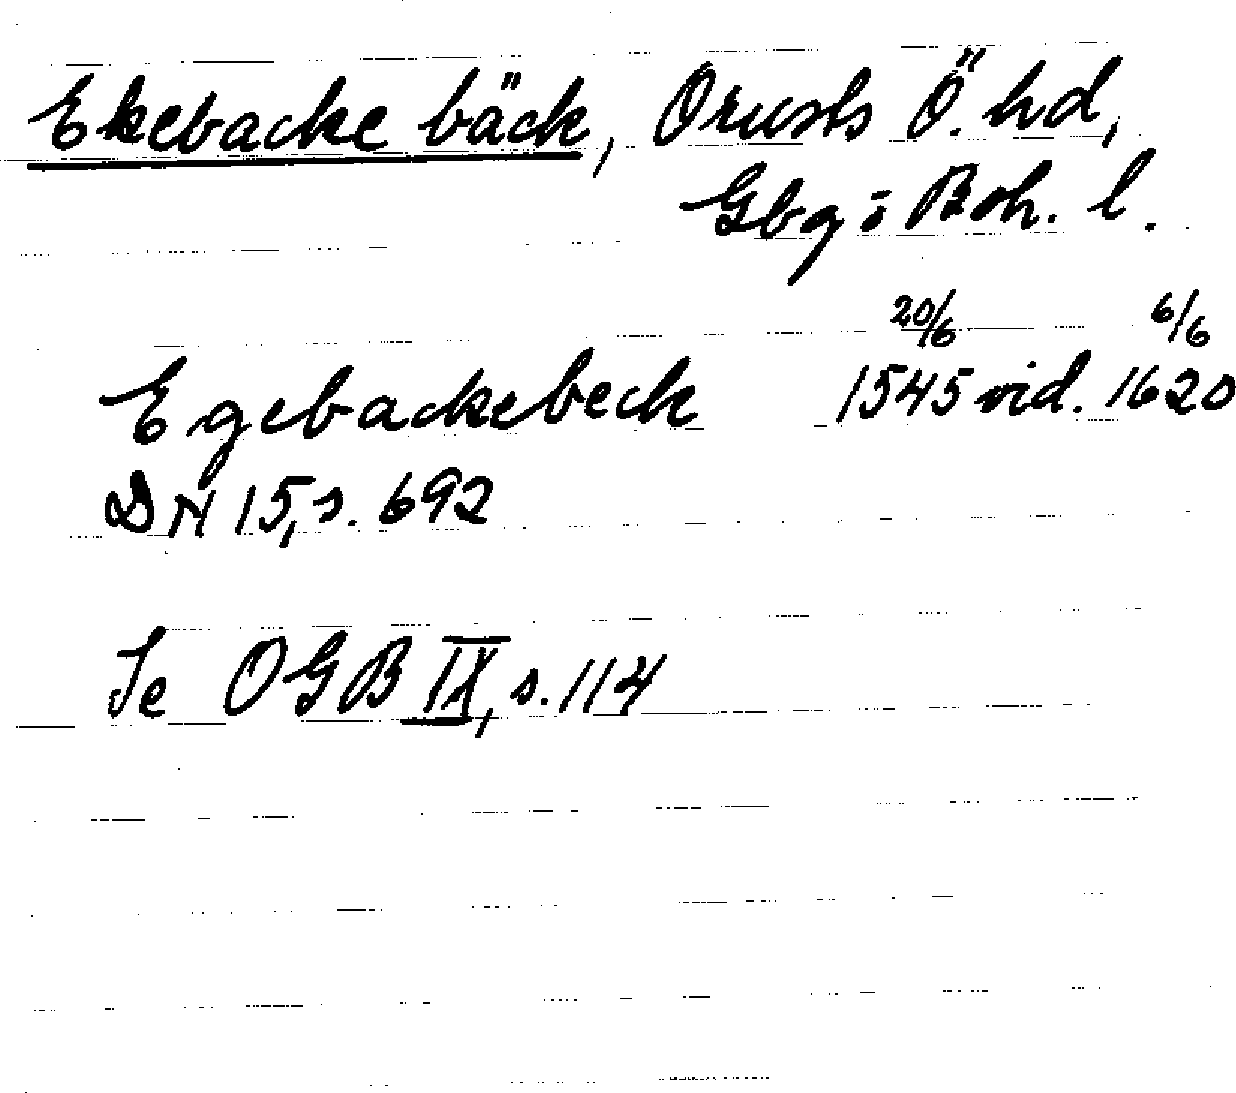 Ekebacke bäck, Orusts Ö. hd,
Gbg o Boh. l.
Egebackebeck 20/6 1545 vid. 6/6 1620
DN 15, s. 692
Se OGB IX, s. 114